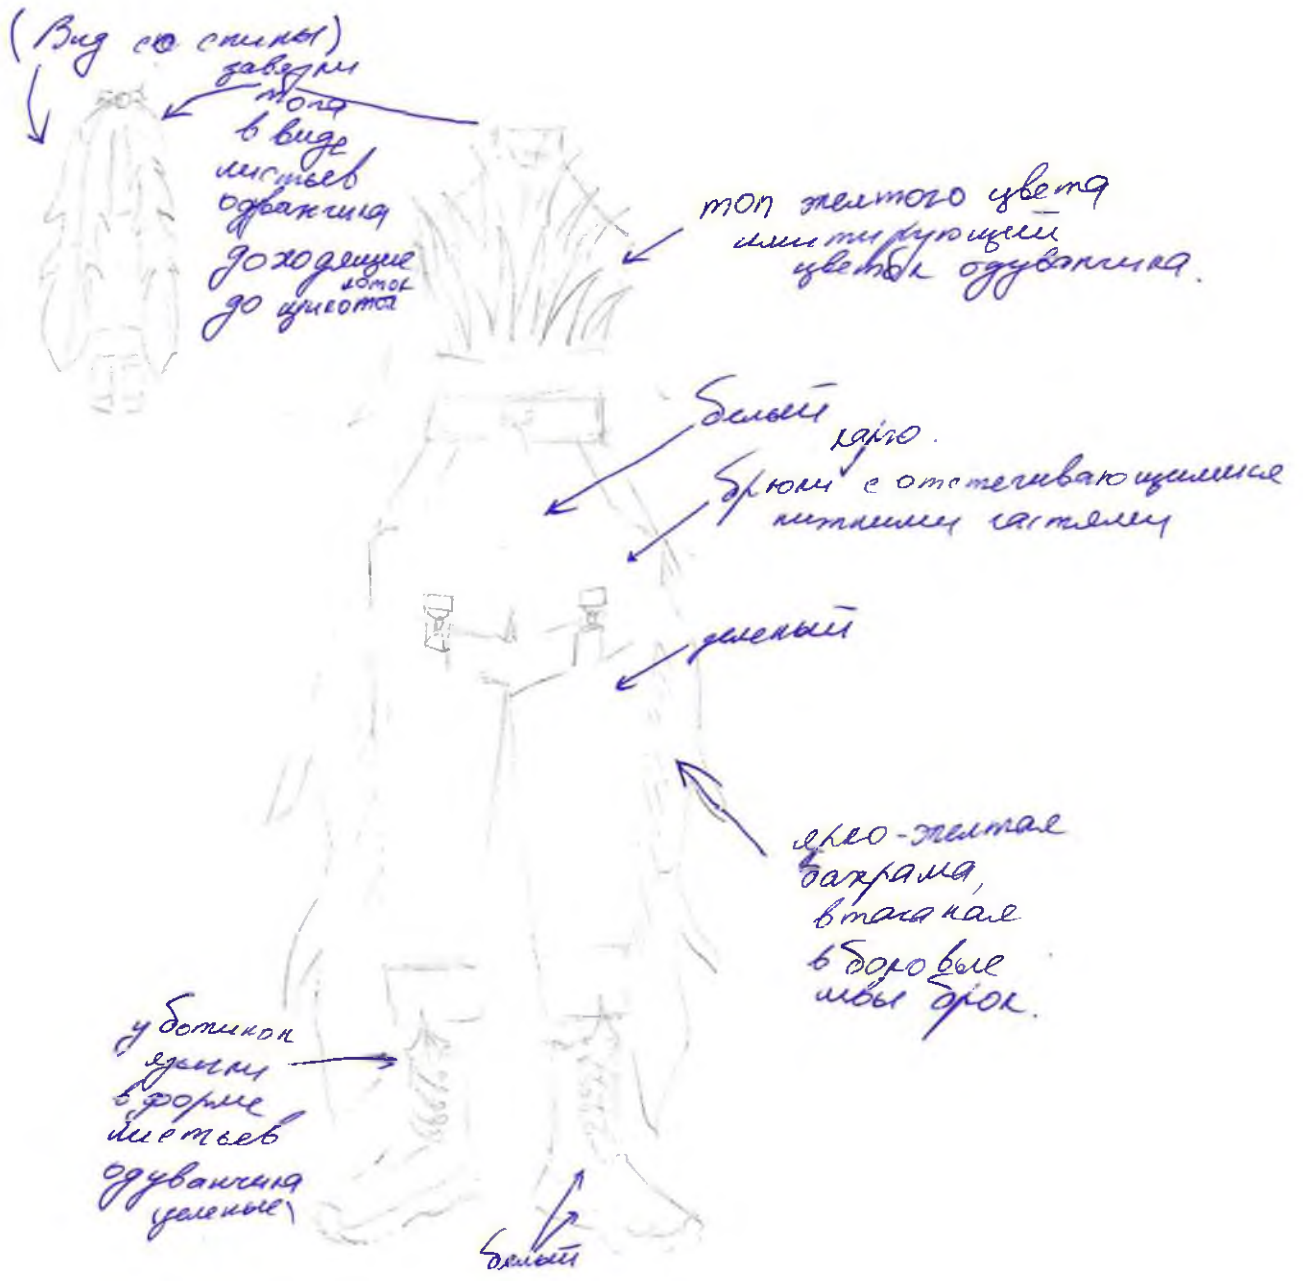 (Вид со спины)
завязки
тога
в виде
листьев
одванчика
доходящие
до щиколоток
топ желтого цвета
имитирующий
цветок одуванчика.
белый
карго.
брюки с отстегивающимися
нижними частями
зеленый
ярко-желтая
бахрама,
втачаная
в боковые
швы брюк.
у ботинок
языки
в форме
листьев
одуванчика
зеленые
белый